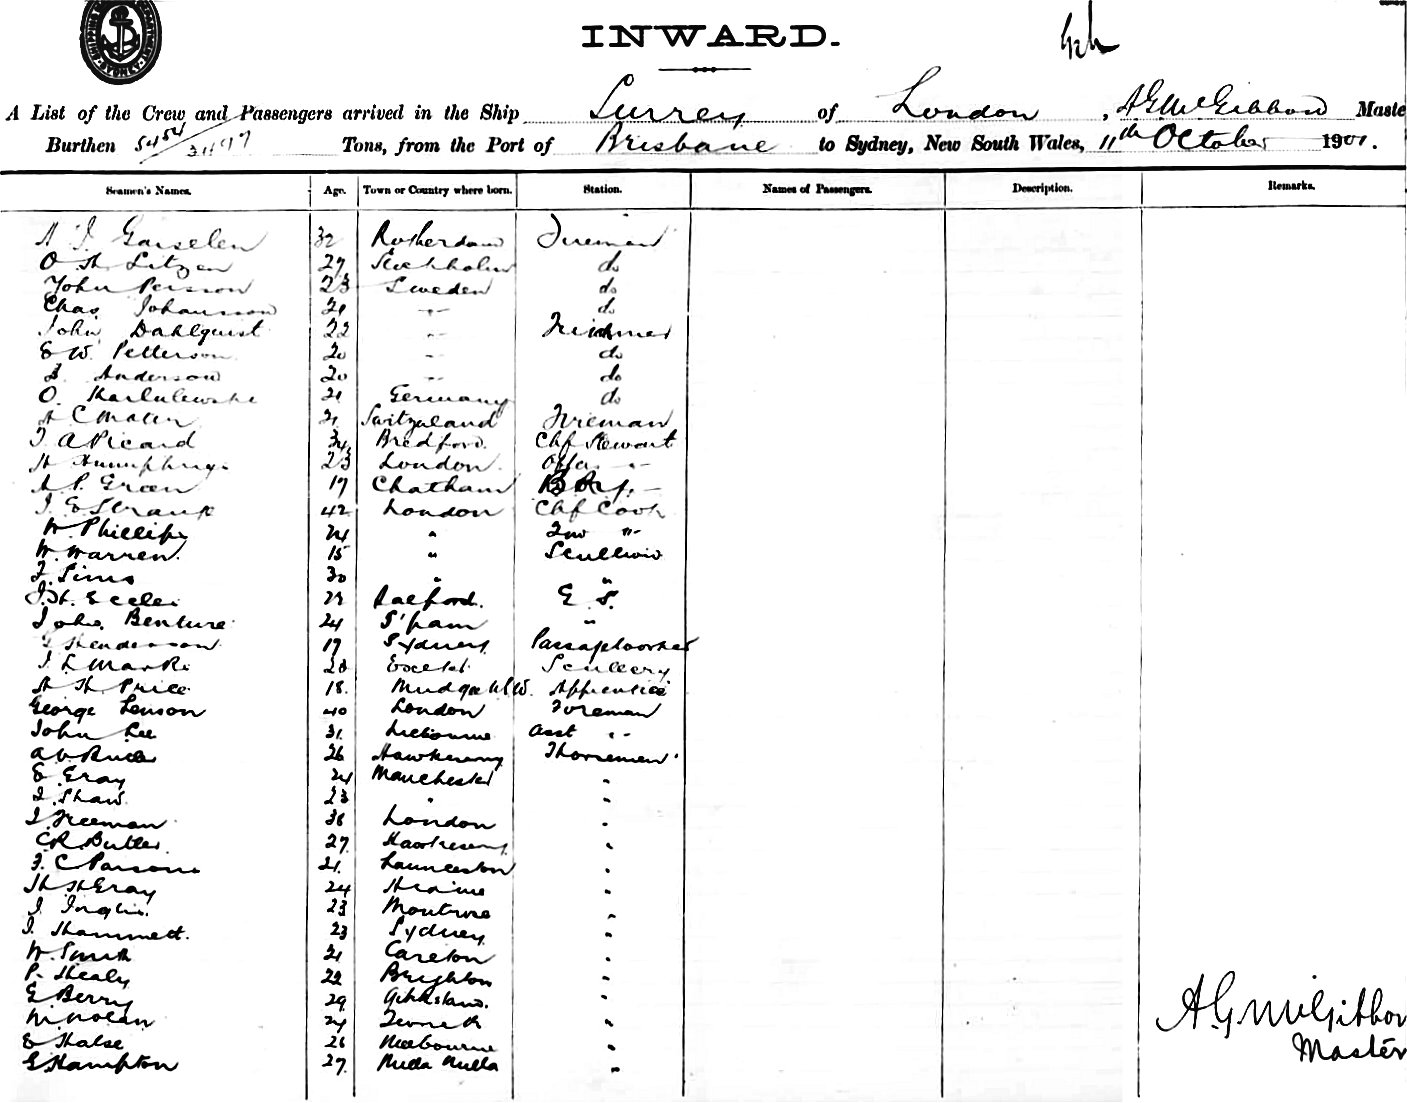 SHIPPING
DEPARTMENT
SYDNEY
INWARD.
A List of the Crew and Passengers arrived in the Ship Surrey of London, A G McGibbon Maste
Burthen 5454/3497 Tons, from the Port of Brisbane to Sydney, New South Wales, 11th October 1901.
Seamen's Names. Age. Town or Country where born. Station. Names of Passengers. Description. Remarks.
32 Rotherdam Fireman
O H Litzen 27 Stockholm do
John Persson 23 Sweden do
Chas Johansson 21 -"- do
John Dahlquist 22 -"-
E W. Petterson 20 -"- do
Anderson 20 -"- do
O. 21 Germany do
21 Switzerland Fireman
J A Picard 34 Bredford. Chf Stewart
H Humphrys 23 London -"-
A P. Green 17 Chatham
J E Strang 42 London Chf Cook
W. Phillips 24 " 2nd "-
W. Warren. 15 " Scullion
F. Sims 30 " "
J. H. Eccles 29 Salford. E S.
John Benture 24 "
G Henderson 19 Sydney
J L Marks 28 Scullery
H H Price 18. Mudgee NSW. Apprentice
George Lenson 40 London Foreman
John Lee 31. Asst "-
26 Hawkesbury Thorsemen
E Gray 24 Manchester "
Shaw. 23 " "
J Freeman 38 London "
C R Butler. 27. Hawkesbury "
F. C Parsons 21. Launceston "
H H Gray 24 "
J. Inglis. 23 Montrose "
J. Hammett. 23 Sydney "
W. Smith 21 Carlton "
P. Healy 22 Brighton "
E Berry 29 Gippsland. "
M Nolan 24 "
E Halse 26 Melbourne "
E Hampton 27. "
A. G. McGibbon
Master